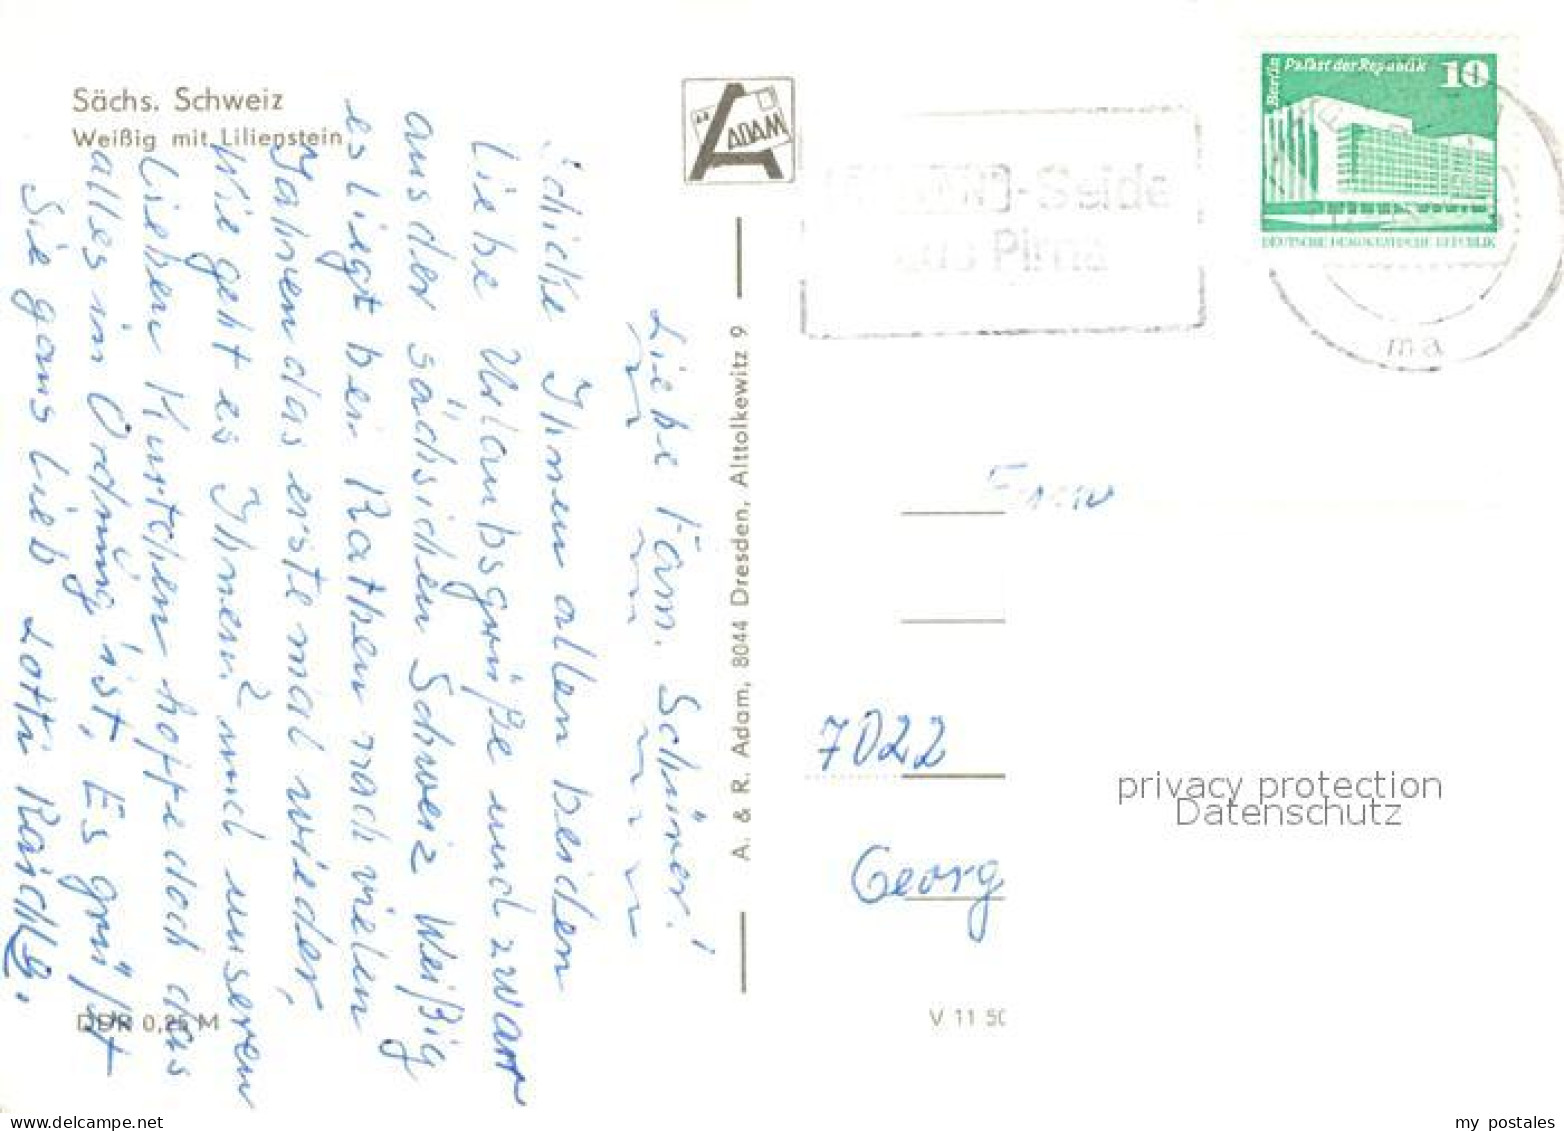 Sächs. Schweiz
Weißig mit Lilienstein
ADAM
Liebe Fam. Schürer!
schicke Ihnen allen beiden
liebe Urlaubsgrüße und zwar
aus der sächsichen Schweiz Weißig
es liegt bei Rathen nach vielen
Jahren das erste mal wieder,
Wie geht es Ihnen? und unseren
lieben Kurtchen hoffe doch das
alles in Ordnung ist. Es grüßt
Sie ganz lieb Lotti
DDR 0,25 M
A. & R. Adam, 8044 Dresden, Alttolkewitz 9
-Seide
aus Pirna
Berlin Palast der Republik 10
DEUTSCHE DEMOKRATISCHE REPUBLIK
ma
7022
Georg
V 11 50
privacy protection
Datenschutz
www.delcampe.net
my_postales